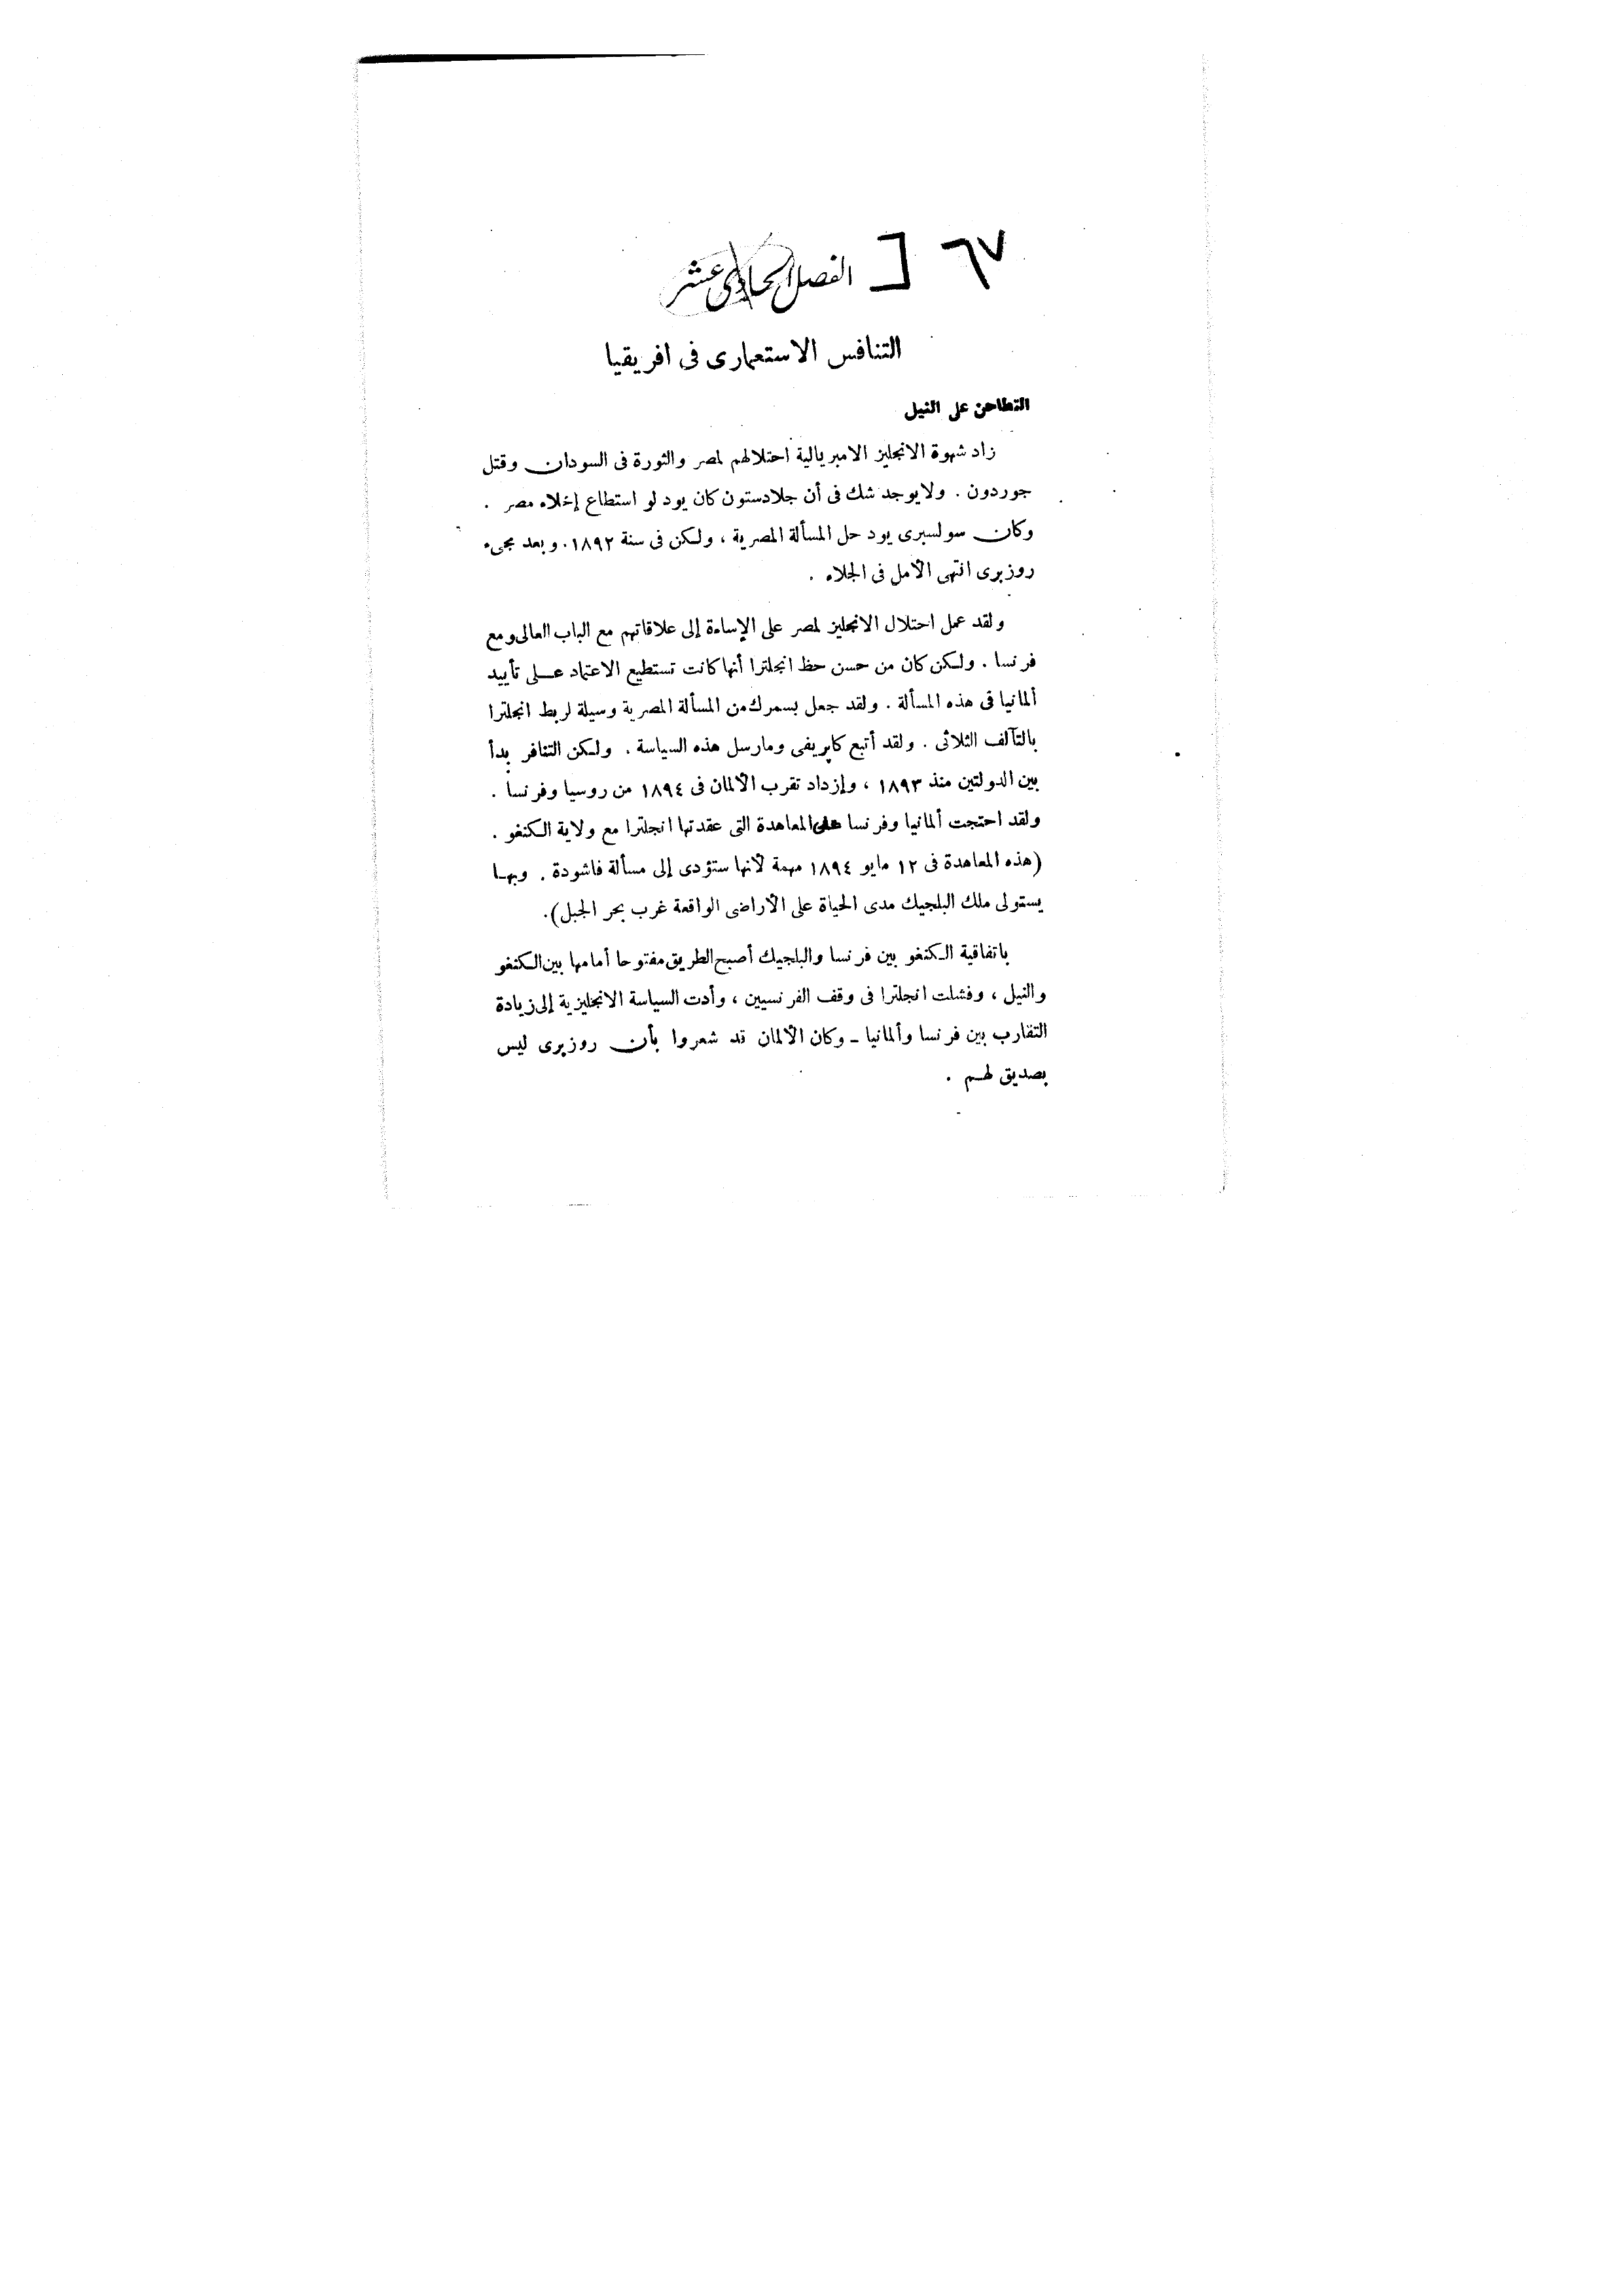 ٦٧ [ الفصل الحادى عشر
التنافس الاستعمارى فى افريقيا
التطاحن على النيل
زاد شهوة الانجليز الامبريالية احتلالهم لمصر والثورة فى السودان وقتل
جوردون . ولايوجد شك فى أن جلادستون كان يود لو استطاع إخلاء مصر .
وكان سولسبرى يود حل المسألة المصرية ، ولكن فى سنة ١٨٩٢. وبعد مجىء
روزبرى انتهى الأمل فى الجلاء .
ولقد عمل احتلال الانجليز لمصر على الإساءة إلى علاقاتهم مع الباب العالى ومع
فرنسا . ولكن كان من حسن حظ انجلترا أنها كانت تستطيع الاعتماد على تأييد
ألمانيا فى هذه المسألة . ولقد جعل بسمرك من المسألة المصرية وسيلة لربط انجلترا
بالتآلف الثلاثى . ولقد أتبع كابريفى ومارسل هذه السياسة . ولكن التنافر بدأ
بين الدولتين منذ ١٨٩٣ ، وإزداد تقرب الألمان فى ١٨٩٤ من روسيا وفرنسا .
ولقد احتجت ألمانيا وفرنسا على المعاهدة التى عقدتها انجلترا مع ولاية الكنغو .
(هذه المعاهدة فى ١٢ مايو ١٨٩٤ مهمة لأنها ستؤدى إلى مسألة فاشودة . وبها
يستولى ملك البلجيك مدى الحياة على الأراضى الواقعة غرب بحر الجبل).
باتفاقية الكنغو بين فرنسا والبلجيك أصبح الطريق مفتوحا أمامها بين الكنغو
والنيل ، وفشلت انجلترا فى وقف الفرنسيين ، وأدت السياسة الانجليزية إلى زيادة
التقارب بين فرنسا وألمانيا - وكان الألمان قد شعروا بأن روزبرى ليس
بصديق لهم .